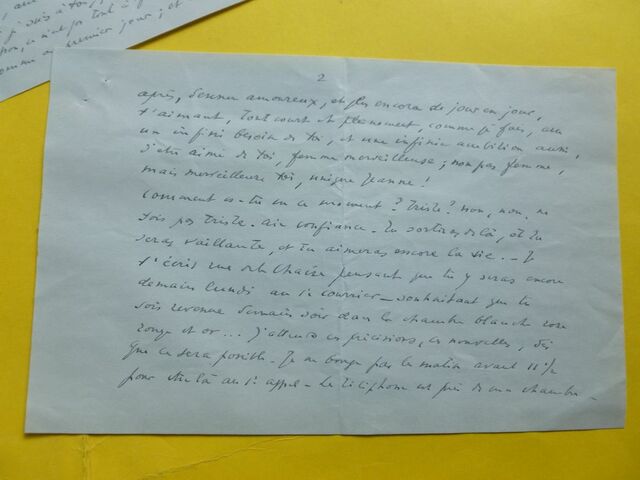 je suis à toi
comme au premier jour ; et
2
après, amoureux, et plus encore de jour en jour,
t'aimant, tout court et pleinement, comme je fais, au
un infini besoin de toi, et une infinie ambition aussi,
d'être aimé de toi, femme merveilleuse ; non pas femme,
mais merveilleuse toi, unique Jeanne !
Comment es-tu en ce moment ? Triste ? Non, non, ne
sois pas triste. Aie confiance. Tu sortiras de là, et tu
seras vaillante, et tu aimeras encore la vie. - Je
t'écris rue de la Chaise pensant que tu y seras encore
demain lundi au 1e courrier - souhaitant que tu
sois revenue demain soir dans la chambre blanche rose
rouge et or... J'attends ces précisions, ces nouvelles, dès
que ce sera possible. Je ne bouge pas le matin avant 11 h 1/2
pour être là au 1e appel. - Le téléphone est près de ma chambre -